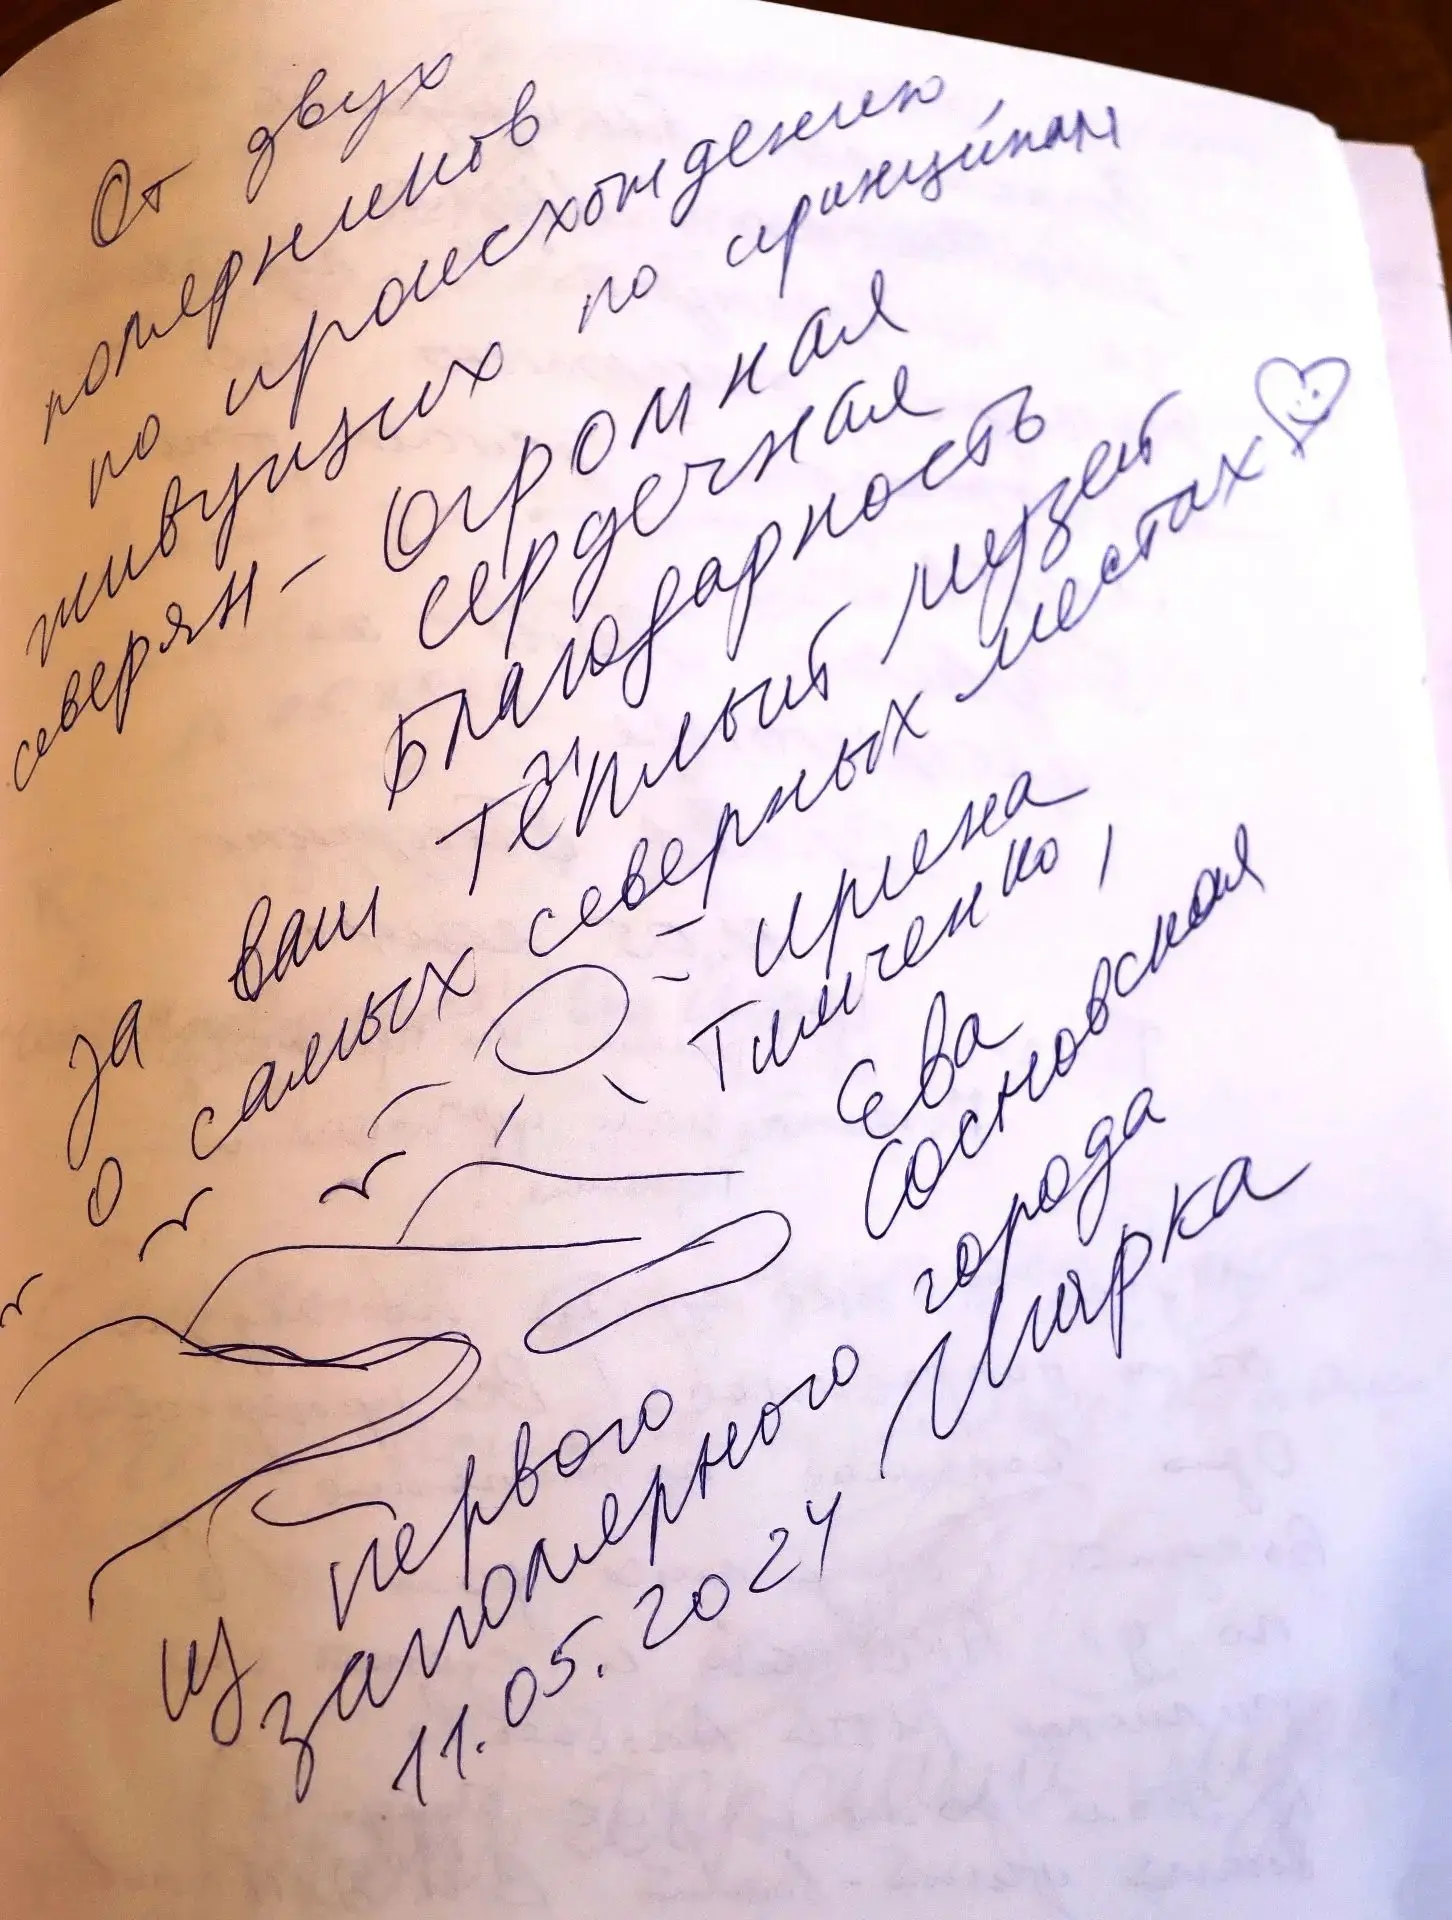 От двух
полярников
по происхождению
живущих по принципам
северян – Огромная
сердечная
благодарность
за ваш тёплый музей
о самых северных местах
Ирина
Тимченко,
Ева
Сосновская
из первого
заполярного города
Игарка
11.05.2024